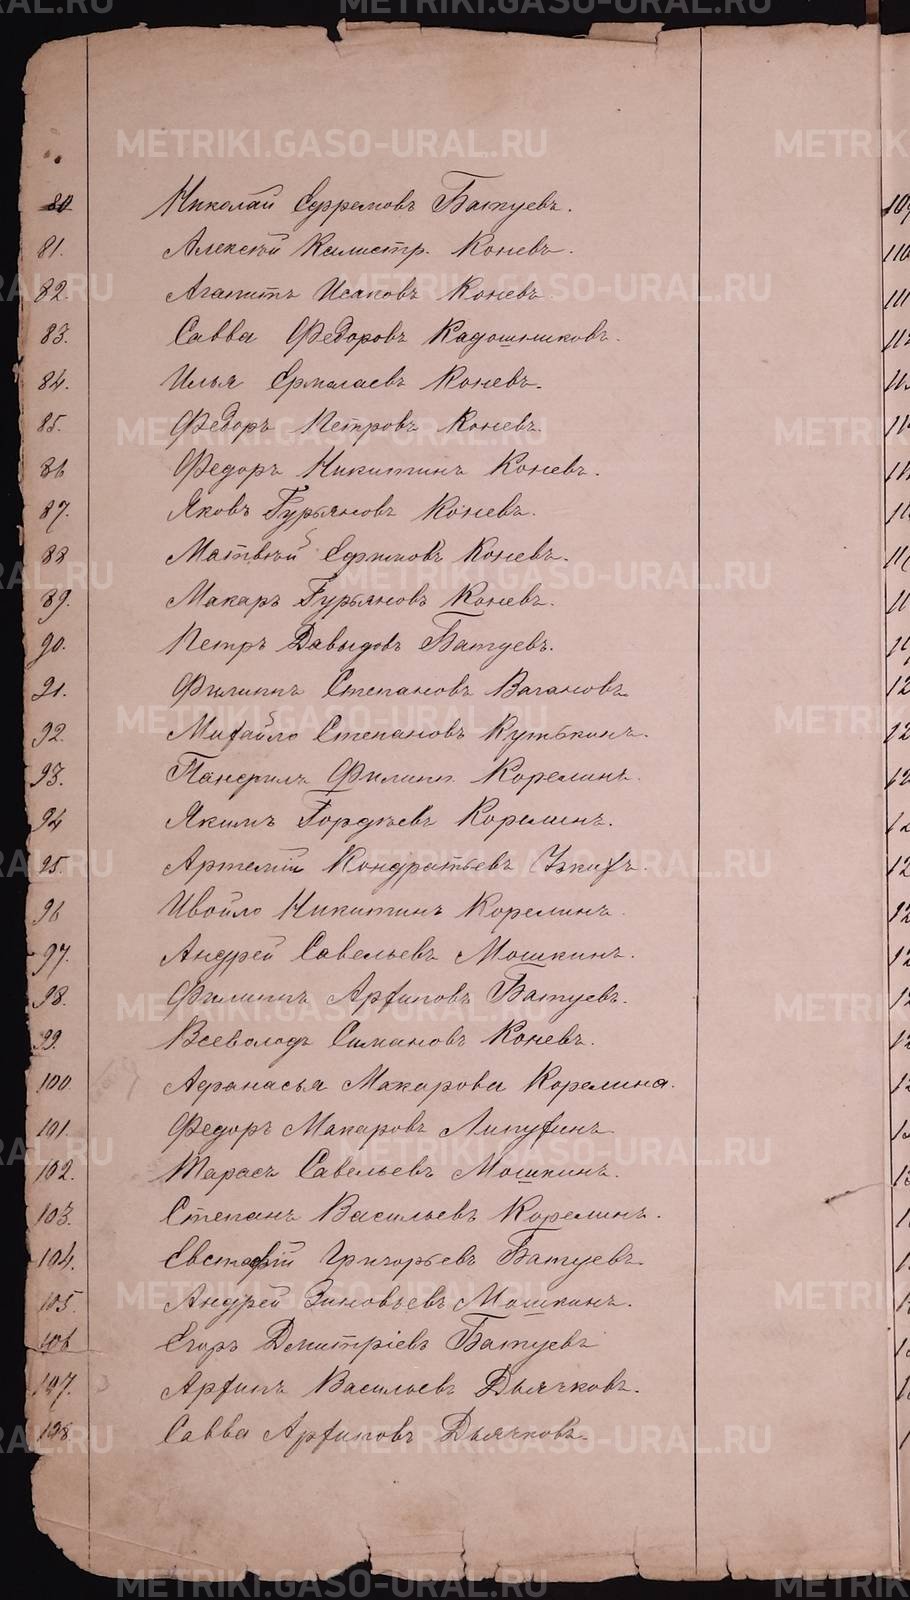 METRIKI.GASO-URAL.RU
80 Николай Ефремовъ Батуевъ.
81. Алексѣй Калистр. Коневъ.
82. Агапитъ Исаковъ Коневъ.
83. Савва Федоровъ Кадошниковъ.
84. Илья Ермолаевъ Коневъ.
85. Федоръ Петровъ Коневъ.
86 Федоръ Никитинъ Коневъ.
87. Яковъ Гурьяновъ Коневъ.
88 Матвѣй Ефимовъ Коневъ.
89. Макаръ Гурьяновъ Коневъ.
90. Петръ Давыдовъ Батуевъ.
91. Филиппъ Степановъ Вагановъ
92. Михайло Степановъ Кутькинъ.
93. Панфилъ Филипп. Корелинъ.
94 Якимъ Гордѣевъ Корелинъ.
95. Артемій Кондратьевъ
96 Ивойло Никитинъ Корелинъ.
97. Андрей Савельевъ Мошкинъ.
98. Филиппъ Архиповъ Батуевъ.
99. Всеволодъ Симановъ Коневъ.
100 Афанасья Макарова Корелина.
101. Федоръ Макаровъ Липухинъ
102. Тарасъ Савельевъ Мошкинъ.
103. Степанъ Васильевъ Корелинъ.
104. Евстафій Григорьевъ Батуевъ
105. Андрей Зиновьевъ Мошкинъ.
106 Егоръ Дмитріевъ Батуевъ
107. Архипъ Васильевъ Дьячковъ.
108. Савва Архиповъ Дьячковъ.